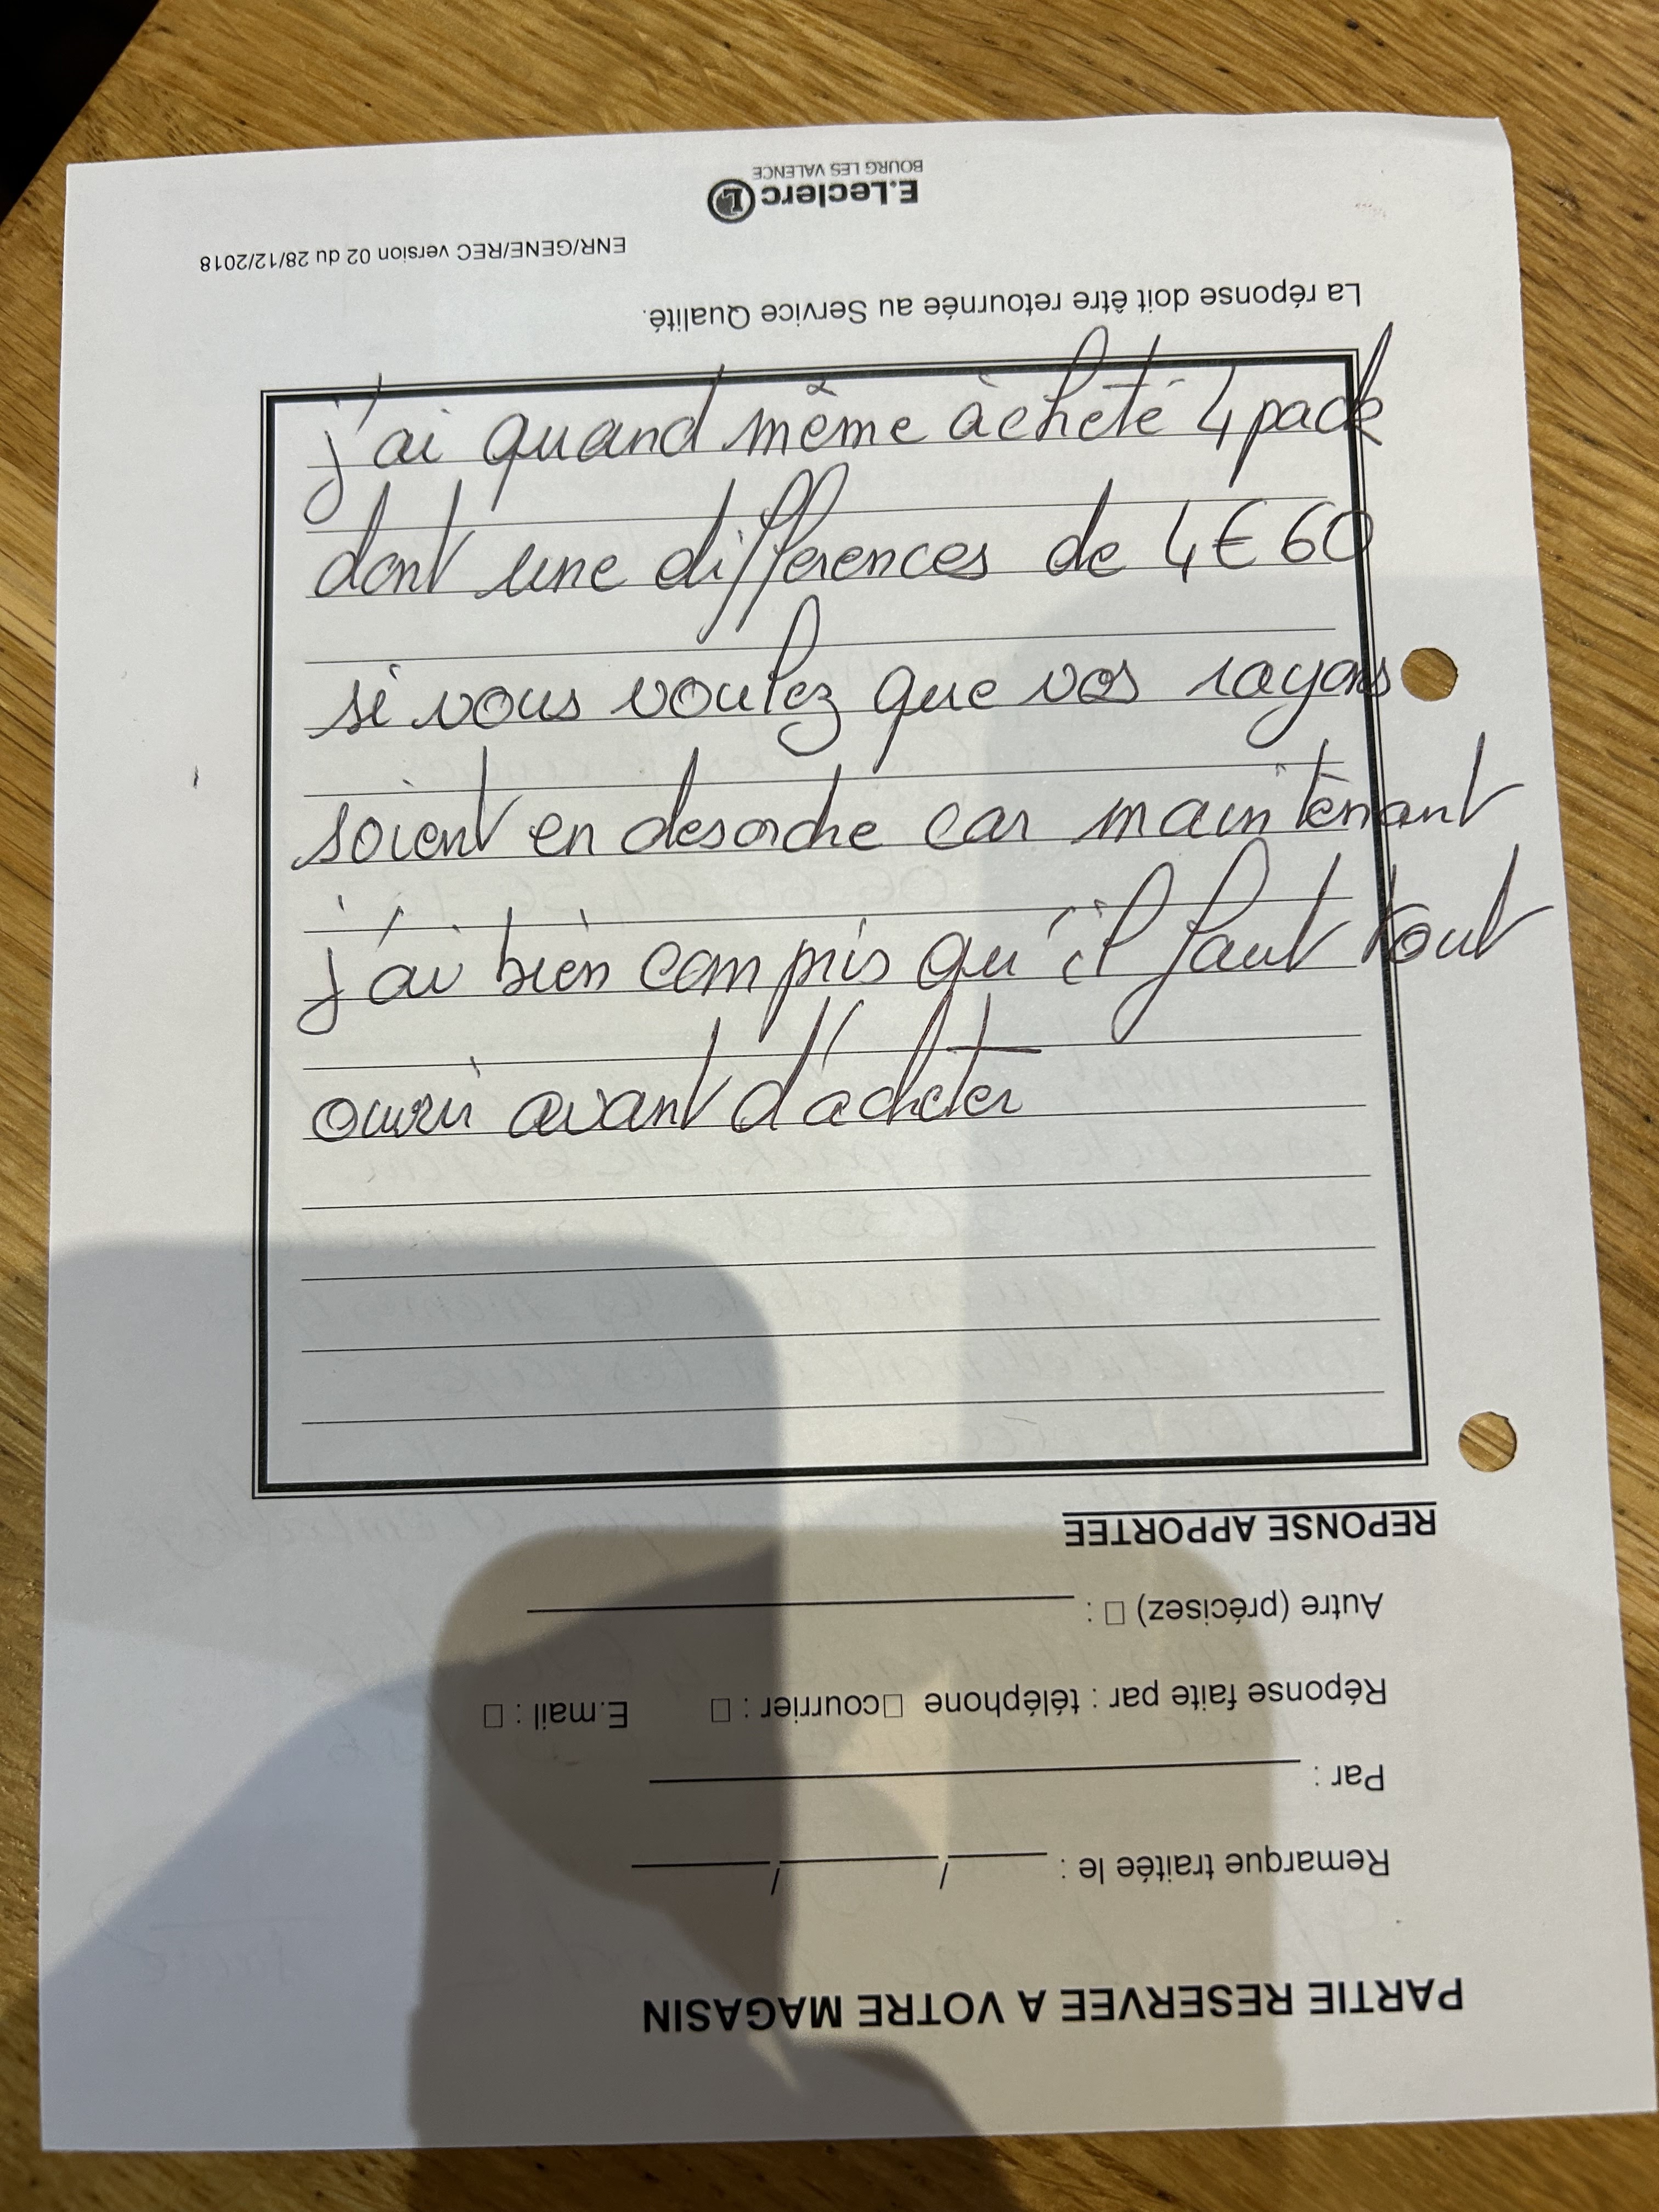 j'ai quand même àcheté 4 pack
dont une différences de 4€60
si vous voulez que vos rayons
soient en desordre car maintenant
j'ai bien compris qu'il faut tout
ouvrir avant d'acheter
PARTIE RESERVEE A VOTRE MAGASIN
Remarque traitée le : / /
Par :
Réponse faite par : téléphone □courrier : □ E.mail : □
Autre (précisez) □ :
REPONSE APPORTEE
La réponse doit être retournée au Service Qualité.
ENR/GENE/REC version 02 du 28/12/2018
E.Leclerc L
BOURG LES VALENCE